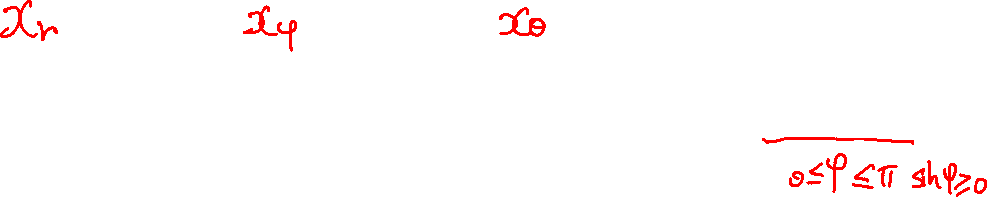 x_r x_φ x_θ
0≤φ≤π sinφ≥0